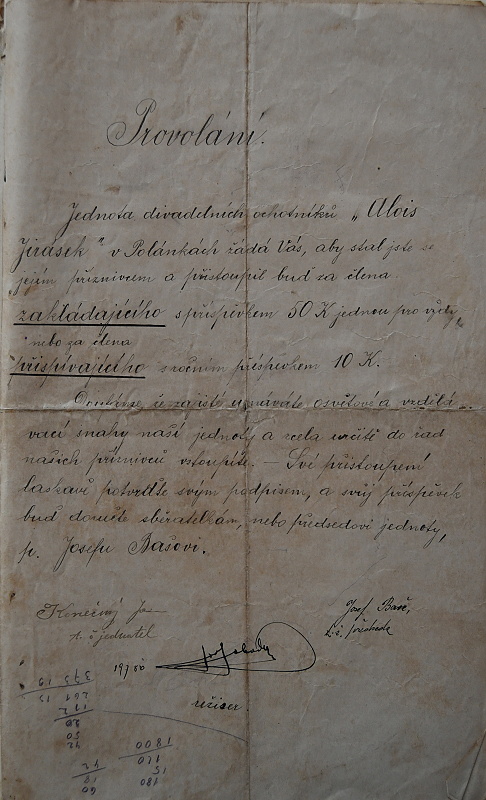 Provolání.
Jednota divadelních ochotníků „Alois
Jirásek" v Polánkách žádá Vás, aby stal jste se
jejím příznivcem a přistoupil buď za člena
zakládajícího s příspěvkem 50 K jednou pro vždy
nebo za člena
přispívajícího s ročním příspěvkem 10 K.
Doufáme, že zajisté uznáváte osvětové a vzdělá-
vací snahy naší jednoty a zcela určitě do řad
našich příznivců vstoupíte. — Své přistoupení
laskavě potvrďte svým podpisem, a svůj příspěvek
buď doručte sběratelkám, nebo předsedovi jednoty,
p. Josefu Bašovi.
Konečný Jos
t. č. jednatel
Josef Baš,
t. č. předseda
režiser
1800
110
15
180
60